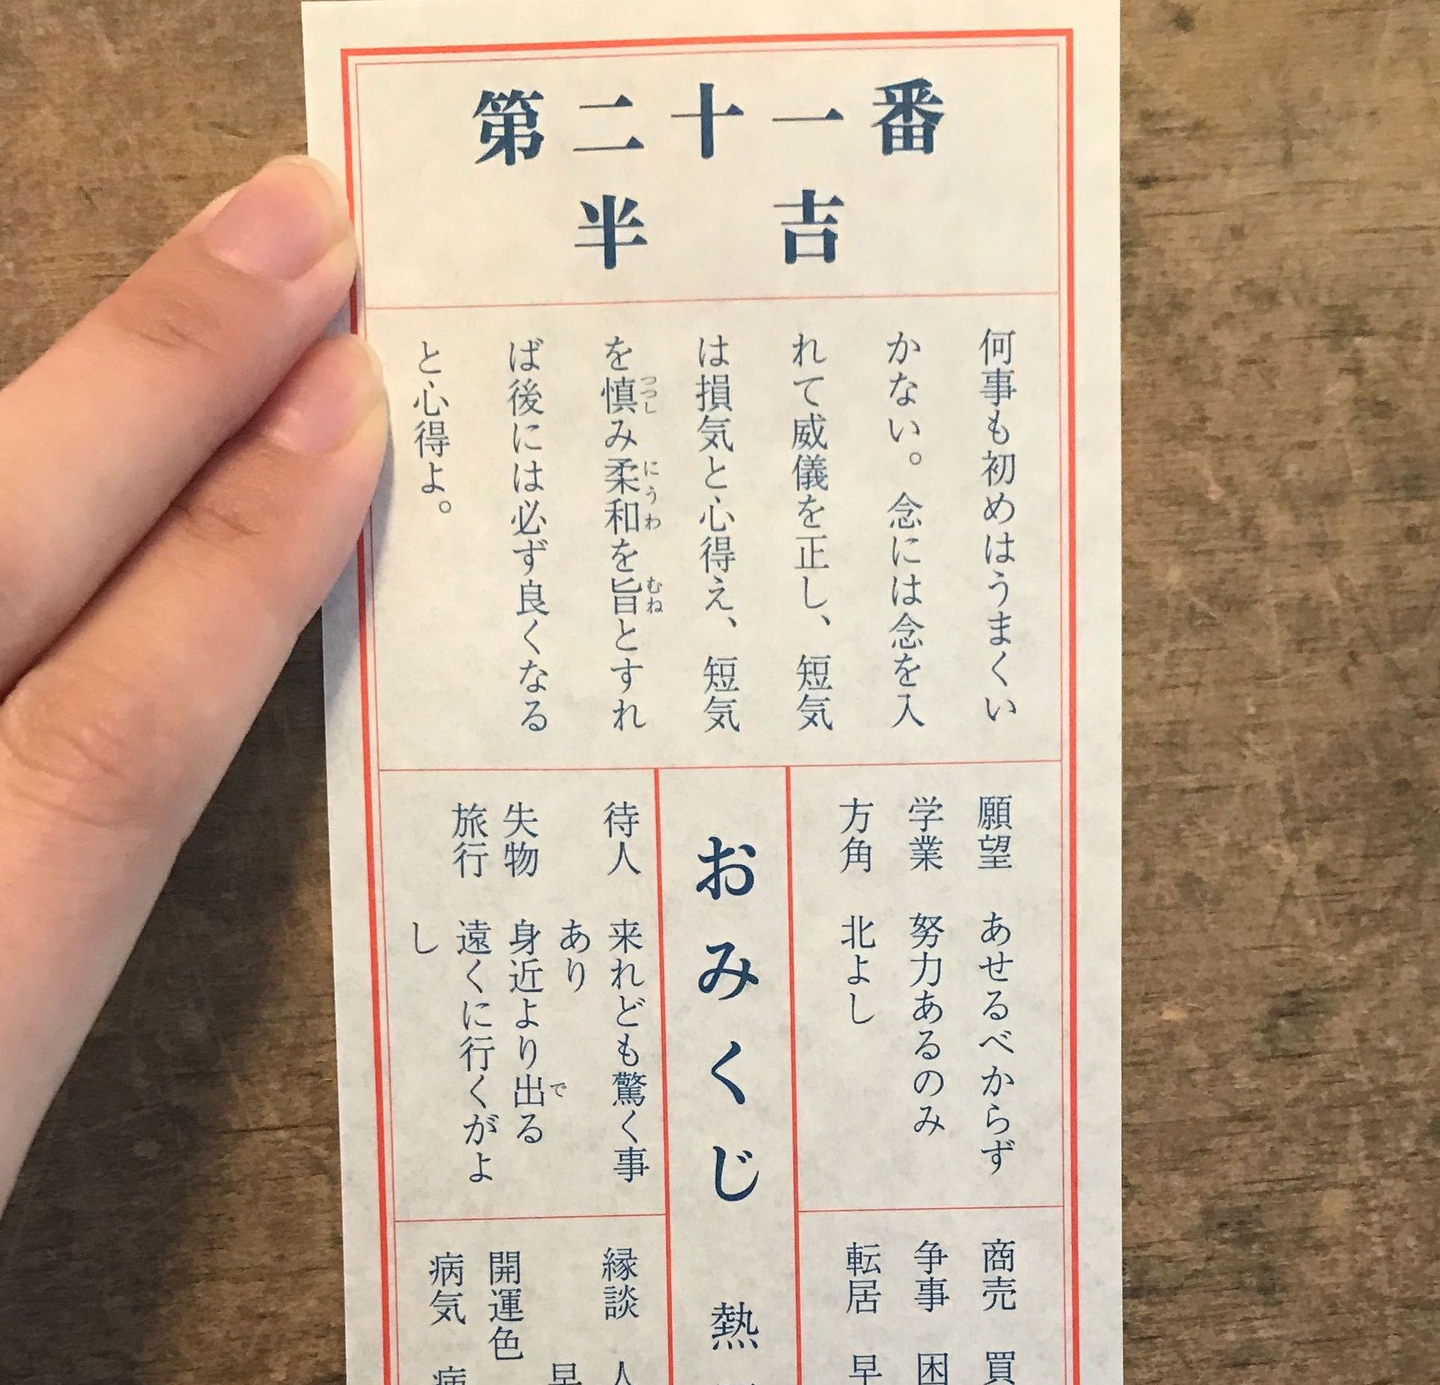 第二十一番
半吉
何事も初めはうまくい
かない。念には念を入
れて威儀を正し、短気
は損気と心得え、短気
を慎み柔和を旨とすれ
つつし にうわ むね
ば後には必ず良くなる
と心得よ。
願望 あせるべからず
学業 努力あるのみ
方角 北よし
おみくじ 熱
待人 来れども驚く事
あり
失物 身近より出る
で
旅行 遠くに行くがよ
し
商売 買
争事 困
転居 早
縁談 人
早
開運色
病気 病